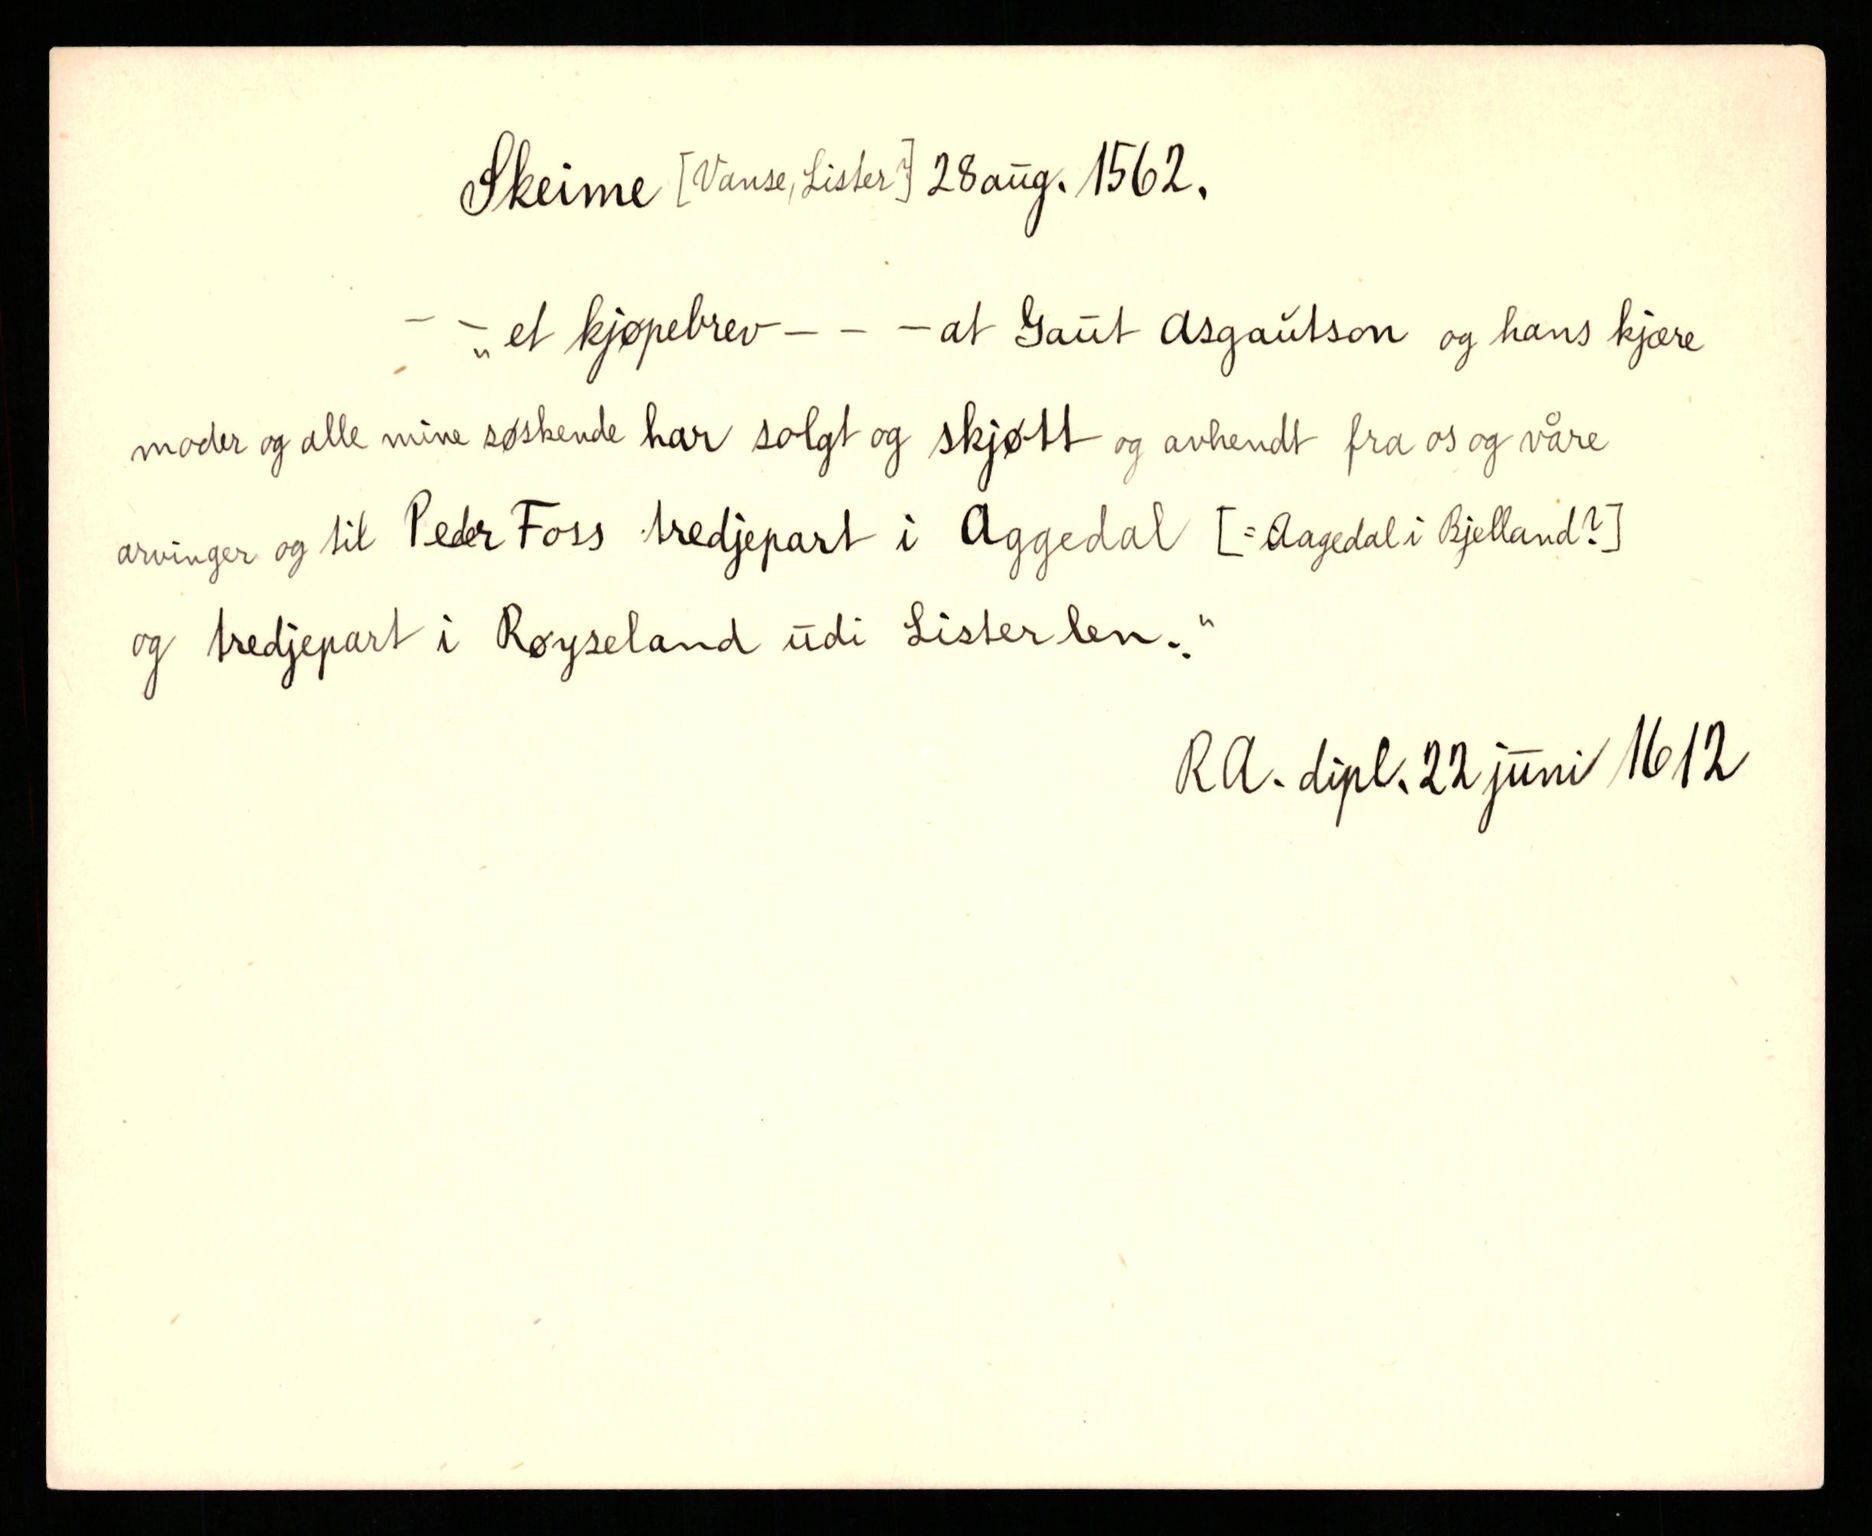 Skeime [Vanse, Lister?] 28 aūg. 1562.
– – „ et kjøpebrev – – – at Gaūt Asgaūtson og hans kjære
moder og alle mine søskende har solgt og skjøtt og avhendt fra os og våre
arvinger og til Peder Foss tredjepart i Aggedal [= Aagedal i Bjelland?]
og tredjepart i Røyseland ūdi Lister len.."
RA. dipl. 22 jūni 1612